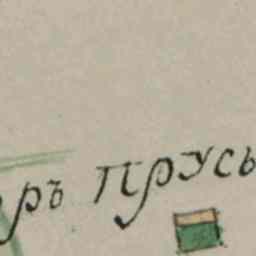 ръ Прусь